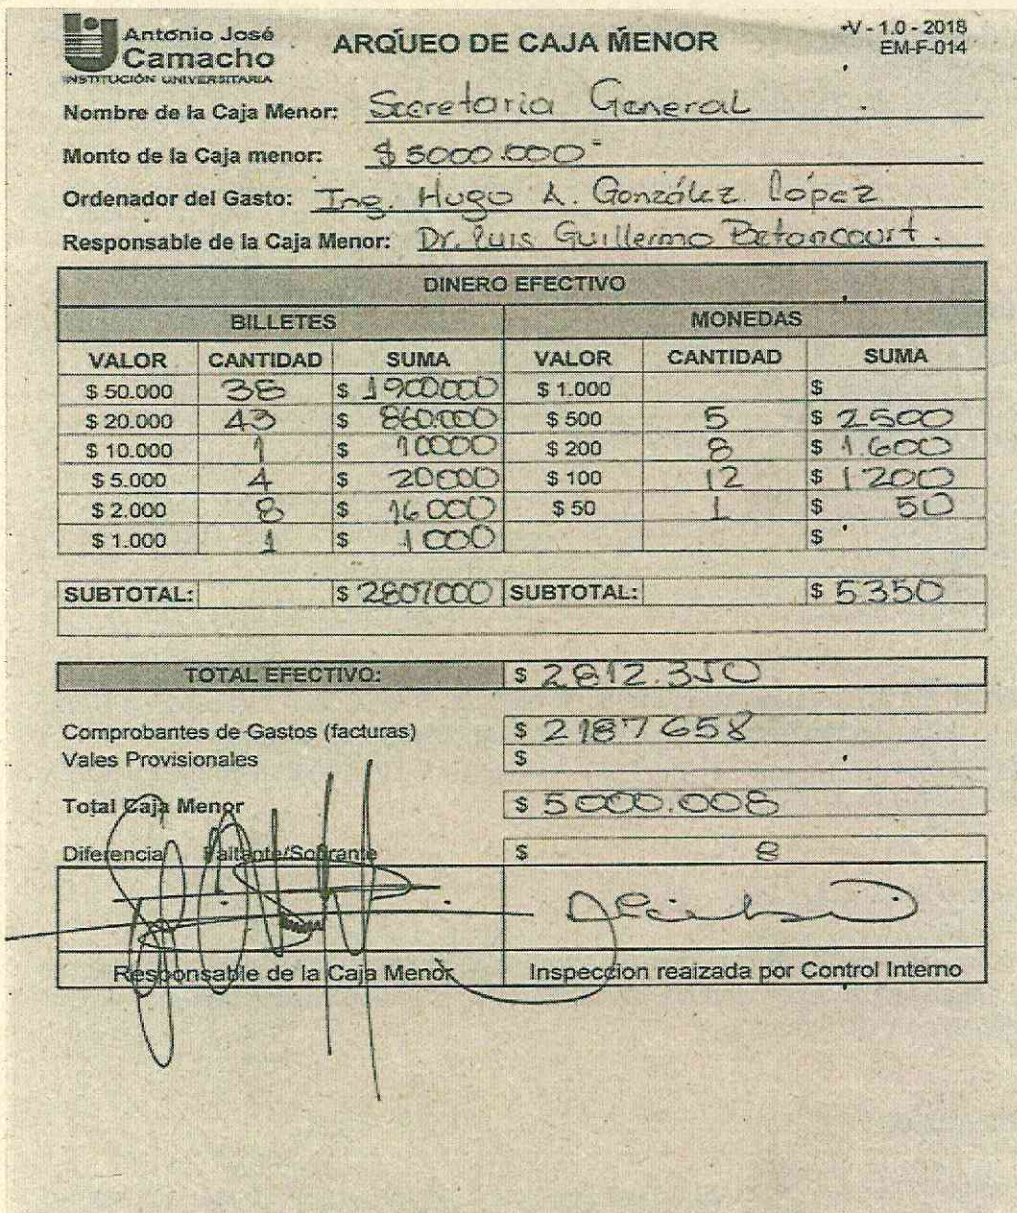 Antonio José
Camacho
INSTITUCIÓN UNIVERSITARIA
ARQUEO DE CAJA MENOR
V - 1.0 - 2018
EM-F-014
Nombre de la Caja Menor: Secretaria General
Monto de la Caja menor: $ 5000.000
Ordenador del Gasto: Ing. Hugo A. González López
Responsable de la Caja Menor: Dr. Luis Guillermo Betancourt.
DINERO EFECTIVO
BILLETES MONEDAS
VALOR CANTIDAD SUMA VALOR CANTIDAD SUMA
$ 50.000 38 $ 1900000 $ 1.000 $
$ 20.000 43 $ 860.000 $ 500 5 $ 2500
$ 10.000 1 $ 10000 $ 200 8 $ 1.600
$ 5.000 4 $ 20000 $ 100 12 $ 1200
$ 2.000 8 $ 16000 $ 50 1 $ 50
$ 1.000 1 $ 1000 $
SUBTOTAL: $ 2807000 SUBTOTAL: $ 5350
TOTAL EFECTIVO: $ 2812.350
Comprobantes de Gastos (facturas) $ 2187658
Vales Provisionales $
Total Caja Menor $ 5000.008
Diferencia Faltante/Sobrante $ 8
Responsable de la Caja Menor Inspeccion reaizada por Control Interno